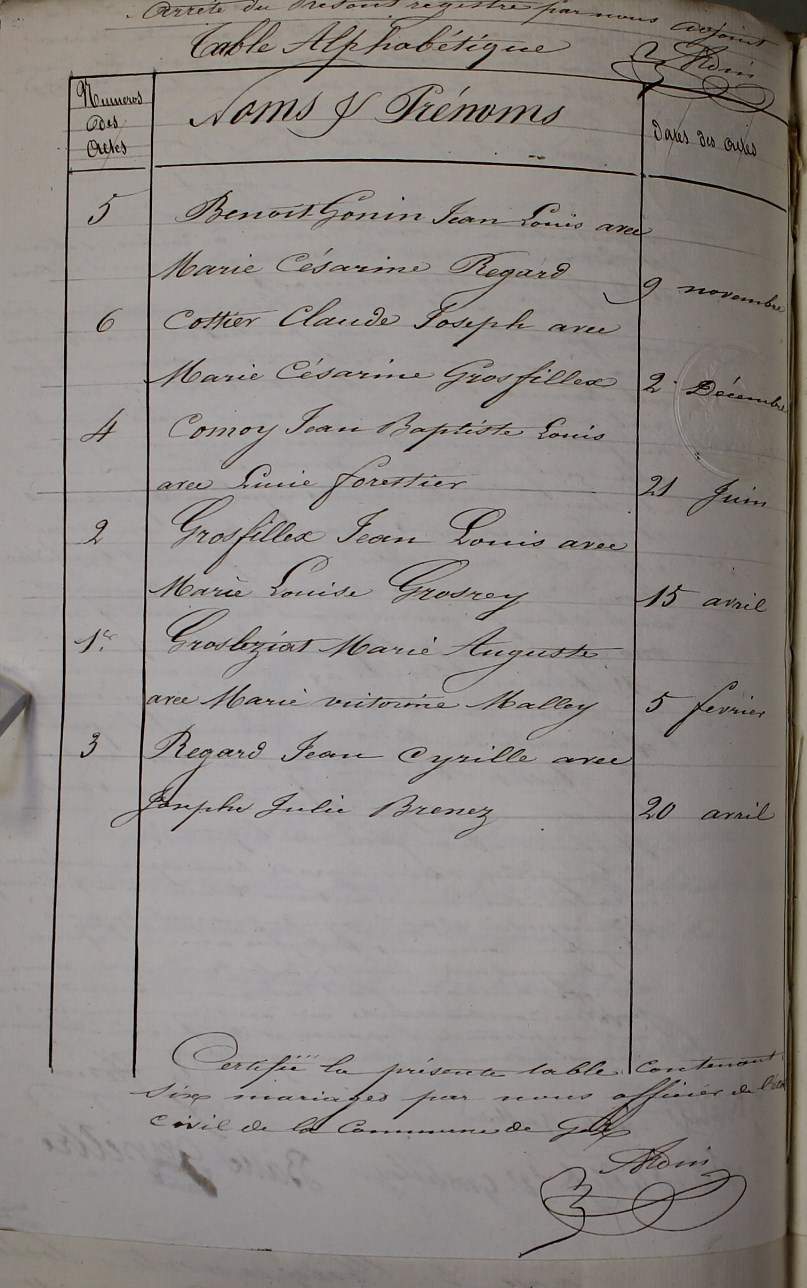 Arrêté du Présent registre par nous adjoint
Table Alphabétique
Numeros
des
Actes
Noms & Prénoms
dates des actes
5 Benoit Gonin Jean Louis avec
Marie Césarine Regard 9 novembre
6 Cottier Claude Joseph avec
Marie Césarine Grosfillex 2 Décembre
4 Comoy Jean Baptiste Louis
avec Lucie forestier 21 Juin
2 Grosfillex Jean Louis avec
Marie Louise Grosrey 15 avril
1er Grosleziat Marie Auguste
avec Marie victorine Malloy 5 fevrier
3 Regard Jean Cyrille avec
Josephe Julie Brenez 20 avril
Certifié la présente table contenant
six mariages par nous officier de l'état
civil de la Commune de